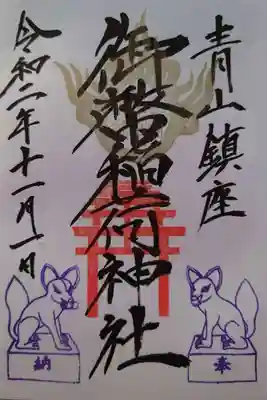 青山鎮座
御嶅稲荷神社
令和二年十一月一日
奉
納